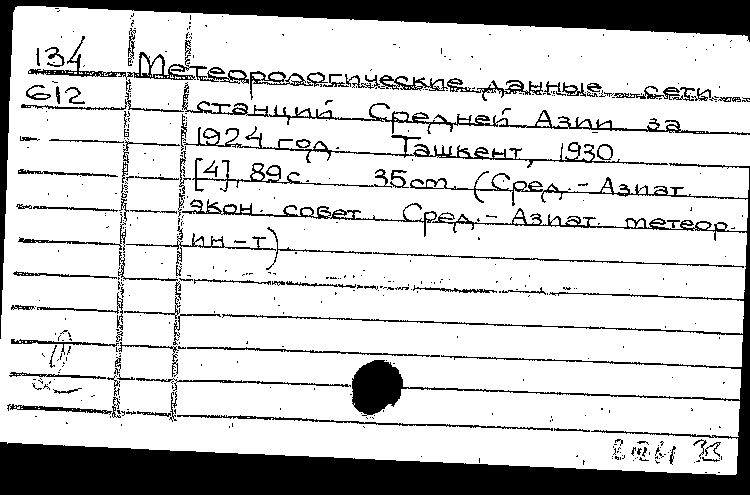 134 Метеорологические данные сети
612 станций Средней Азии за
1924 год. Ташкент, 1930.
[4], 89с. 35см. (Сред.-Азиат.
экон. совет. Сред.-Азиат. метеор.
ин-т).